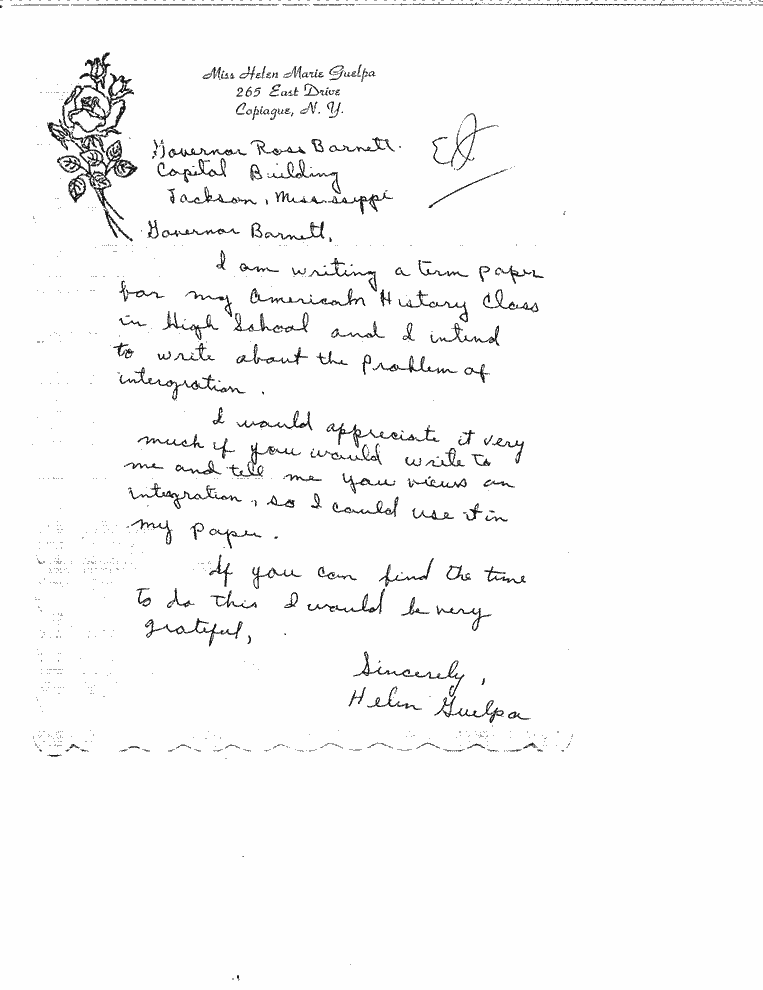 Miss Helen Marie Guelpa
265 East Drive
Copiague, N. Y.
Governor Ross Barnett.
Capital Building
Jackson, Mississippi
Governor Barnett,
I am writing a term paper
for my American History Class
in High School and I intend
to write about the problem of
intergration.
I would appreciate it very
much if you would write to
me and tell me your views on
integration, so I could use it in
my paper.
If you can find the time
to do this I would be very
grateful,
Sincerely,
Helen Guelpa